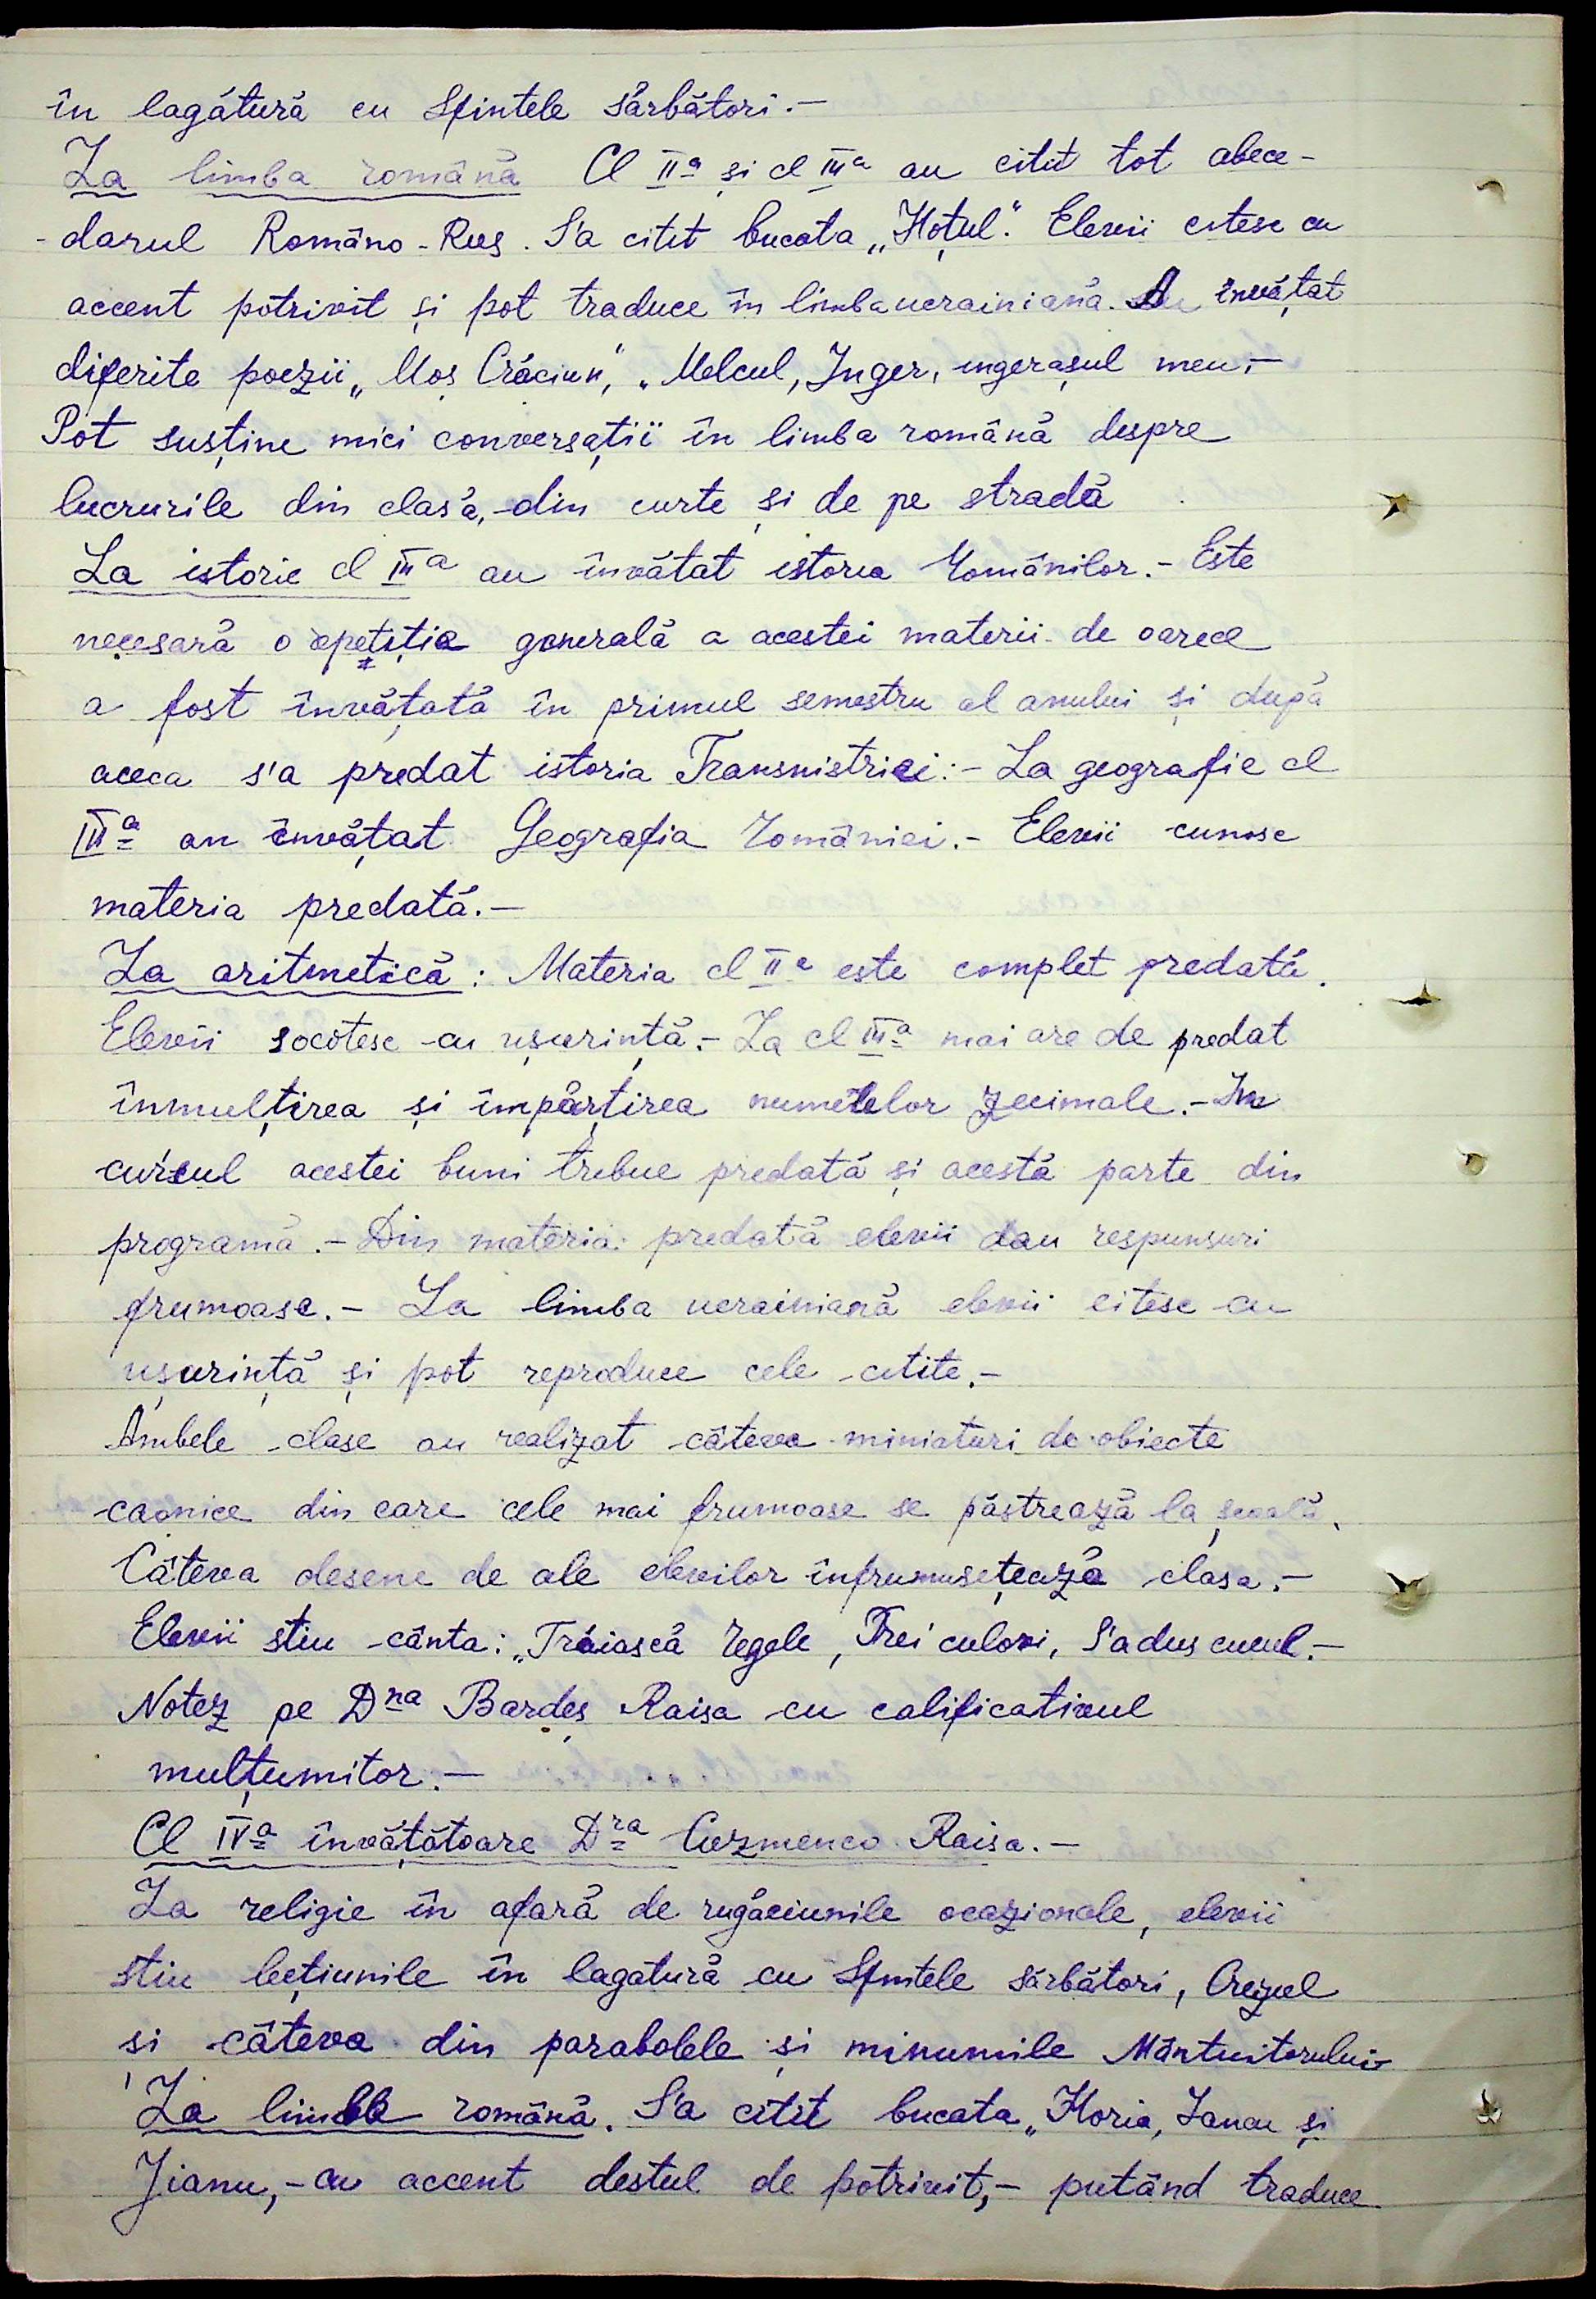 în lagătură cu Sfintele sărbători.-
La limba română Cl IIa și cl IIIa au citit tot abece-
-darul Româno-Rus. S'a citit bucata „Hoțul". Elevii citesc cu
accent potrivit și pot traduce în limba ucrainiană. Au învățat
diferite poezii „Moș Crăciun", „Melcul, Inger, ingerașul meu.-
Pot susține mici conversații în limba română despre
lucrurile din clasă, din curte și de pe stradă
La istorie cl IIIa au învătat istoria Românilor.- Este
necesară o repetiția generală a acestei materii de oarece
a fost învățată în primul semestru al anului și după
aceea s'a predat istoria Transnistriei.- La geografie cl
IIIa au învățat Geografia României.- Elevii cunosc
materia predată.-
La aritmetică: Materia cl IIa este complet predată.
Elevii socotesc cu ușurință.- La cl IIIa mai are de predat
înmulțirea și împărțirea numerelor zecimale.- In
cursul acestei luni trebue predată și acestă parte din
programă.- Din materia predată elevii dau respunsuri
frumoase.- La limba ucrainiană elevii citesc cu
ușurință și pot reproduce cele citite.-
Ambele clase au realizat câteva miniaturi de obiecte
casnice din care cele mai frumoase se păstrează la școală.
Câteva desene de ale elevilor înfrumusețează clasa.-
Elevii stiu cânta: „Trăiască Regele, Trei culori, S'a dus cucul.-
Notez pe Dna Bardeș Raisa cu calificativul
mulțumitor.-
Cl IVa învățătoare Dra Cuzmenco Raisa.-
La religie în afară de rugăciunile ocazionale, elevii
stiu lecțiunile în lagatură cu Sfintele sărbători, Crezul
și câteva din parabolele și minunile Mântuitorului
La limba română. S'a citit bucata „Horia, Iancu și
Jianu,- cu accent destul de potrivit,- putând traduce